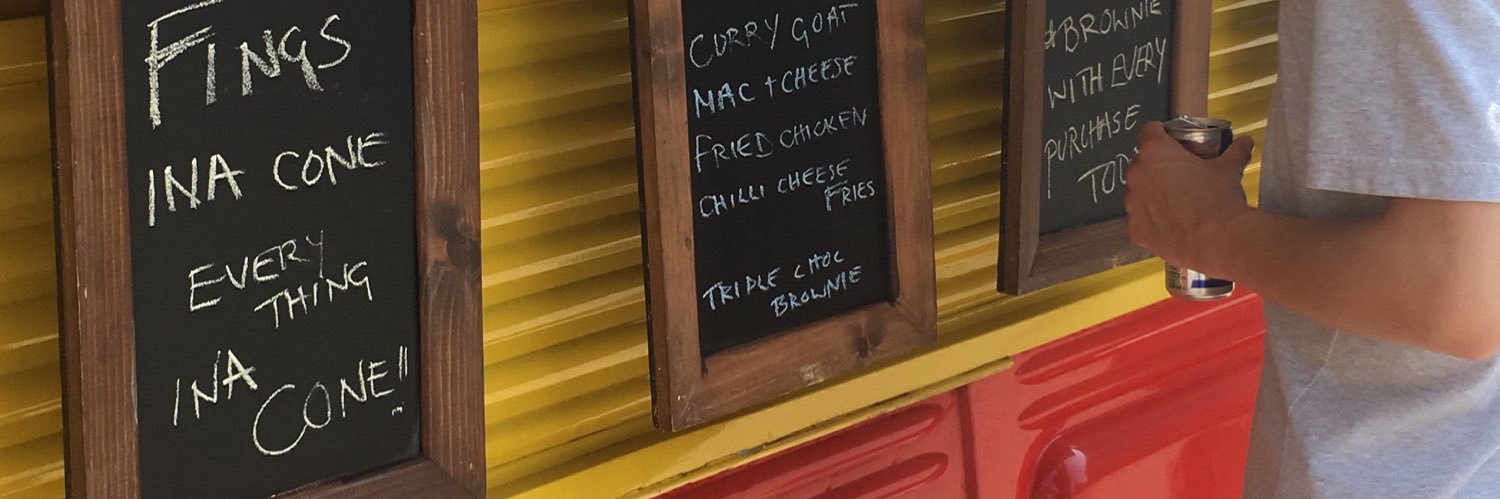 FINGS
INA CONE
EVERY
THING
INA
CONE!!
CURRY GOAT
MAC + CHEESE
FRIED CHICKEN
CHILLI CHEESE
FRIES
TRIPLE CHOC
BROWNIE
BROWNIE
WITH EVERY
PURCHASE